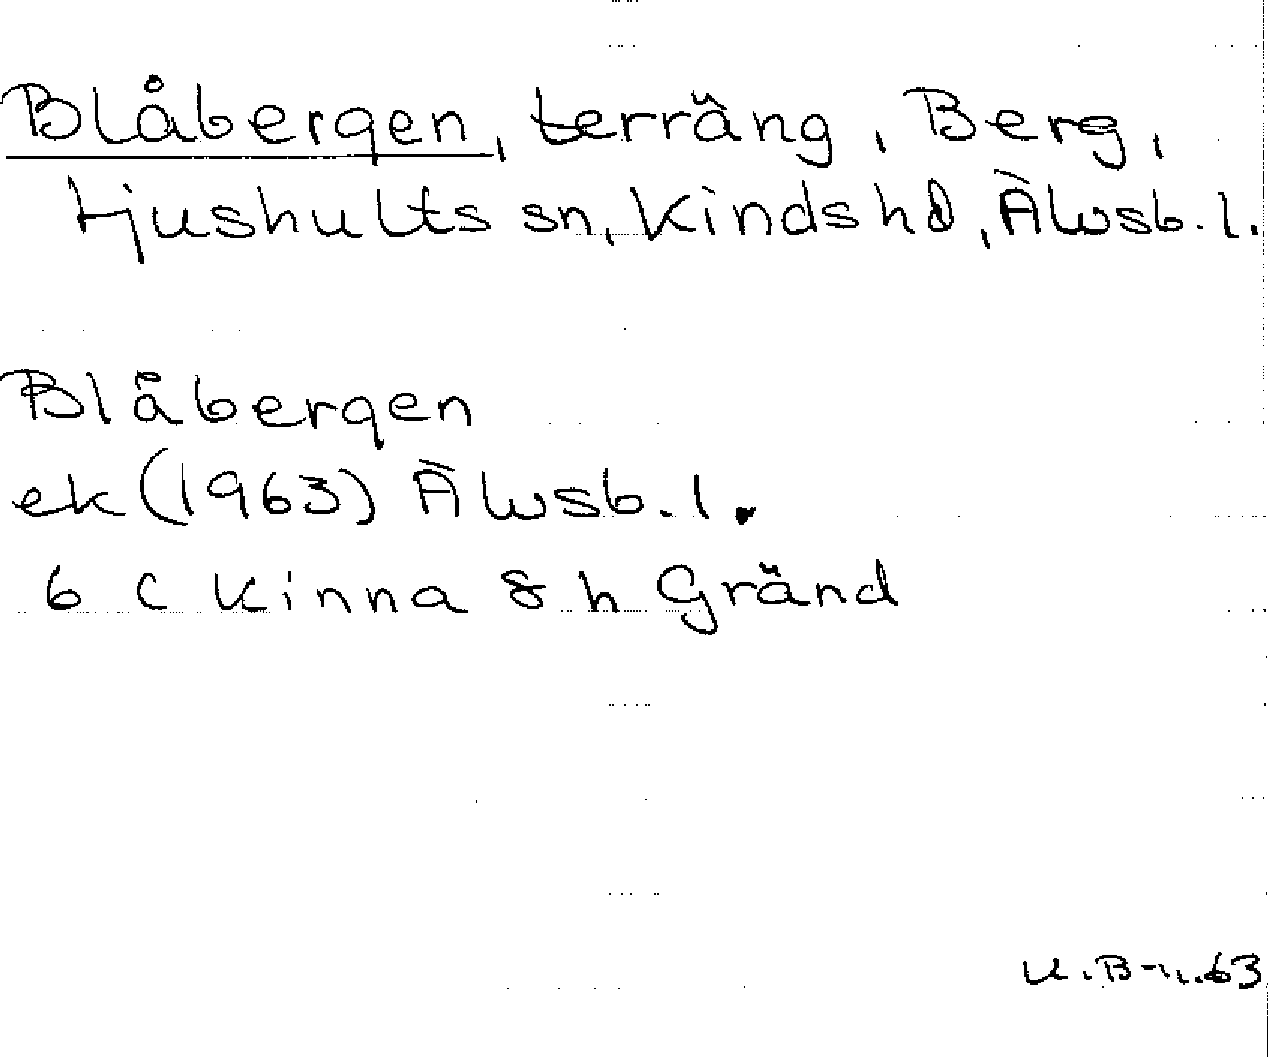 Blåbergen, terräng, Berg,
Ljushults sn, Kinds hd, Älvsb. l.
Blåbergen
ek (1963) Älvsb. l.
6 C Kinna 8 h Gränd